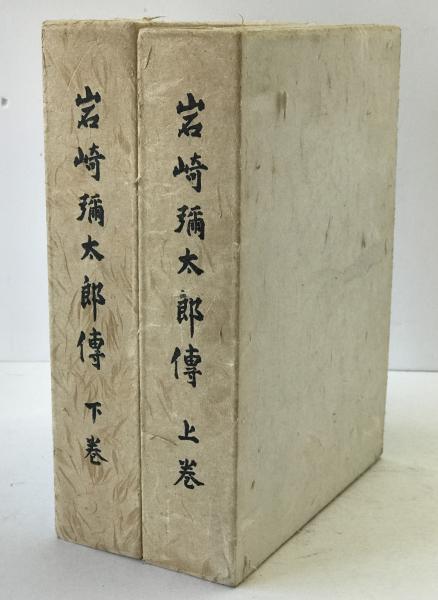 岩崎彌太郎傳 上巻
岩崎彌太郎傳 下巻